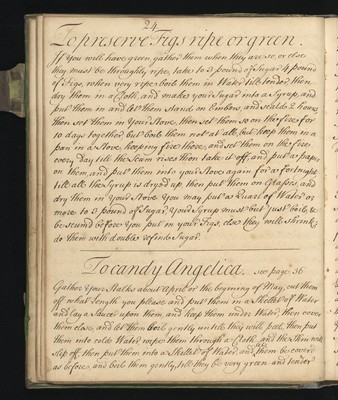 24
To preserve Figs ripe or green.
If you will have green, gather them when they are so, or else
they must be throughly ripe, take to 3 pound of Sugar 4 pound
of Figs, when very ripe, boil them in Water till tender, then
dry them in a Cloth, and make your Sugar into a Syrup, and
put them in and let them stand on Embers, and scald 2 hours,
then set them in your Stove, then set them so on the fire for
10 days together, but boil them not at all, but keep them in a
pan in a Stove, keeping fire those, and set them on the fire
every Day till the Scum rises then take it off, and put a paper
on them, and put them into your Stove again for a fortnight,
till all the Syrup is dryed up, then put them on Glasses, and
dry them in your Stove. You may put a Quart of Water or
more to 3 pound of Sugar, Your Syrup must but just boil, &
be scumd before you put in your Figs, else they will shrink;
do them with double refind Sugar.
To candy Angelica. see page 36
Gather your Stalks about April or the begining of May, cut them
off what length you please and put them in a Skillet of Water
and lay a Saucer upon them, and keep them under Water, then cover
them close, and let them boil gently untill they will peel, then put
them into cold Water rape them through a Cloth and the Skin will
slip off, then put them into a Skillet of Water, and let them be coverd
as before, and boil them gently, till they be very green and tender